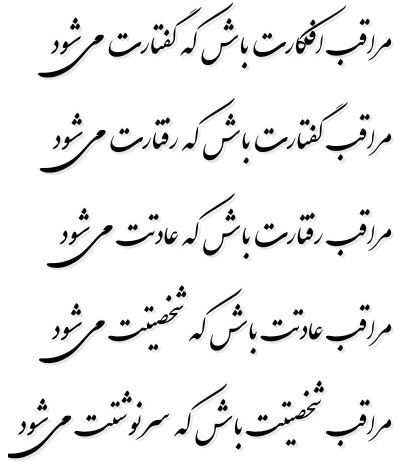 مراقب افکارت باش که گفتارت می‌شود
مراقب گفتارت باش که رفتارت می‌شود
مراقب رفتارت باش که عادتت می‌شود
مراقب عادتت باش که شخصیتت می‌شود
مراقب شخصیتت باش که سرنوشتت می‌شود